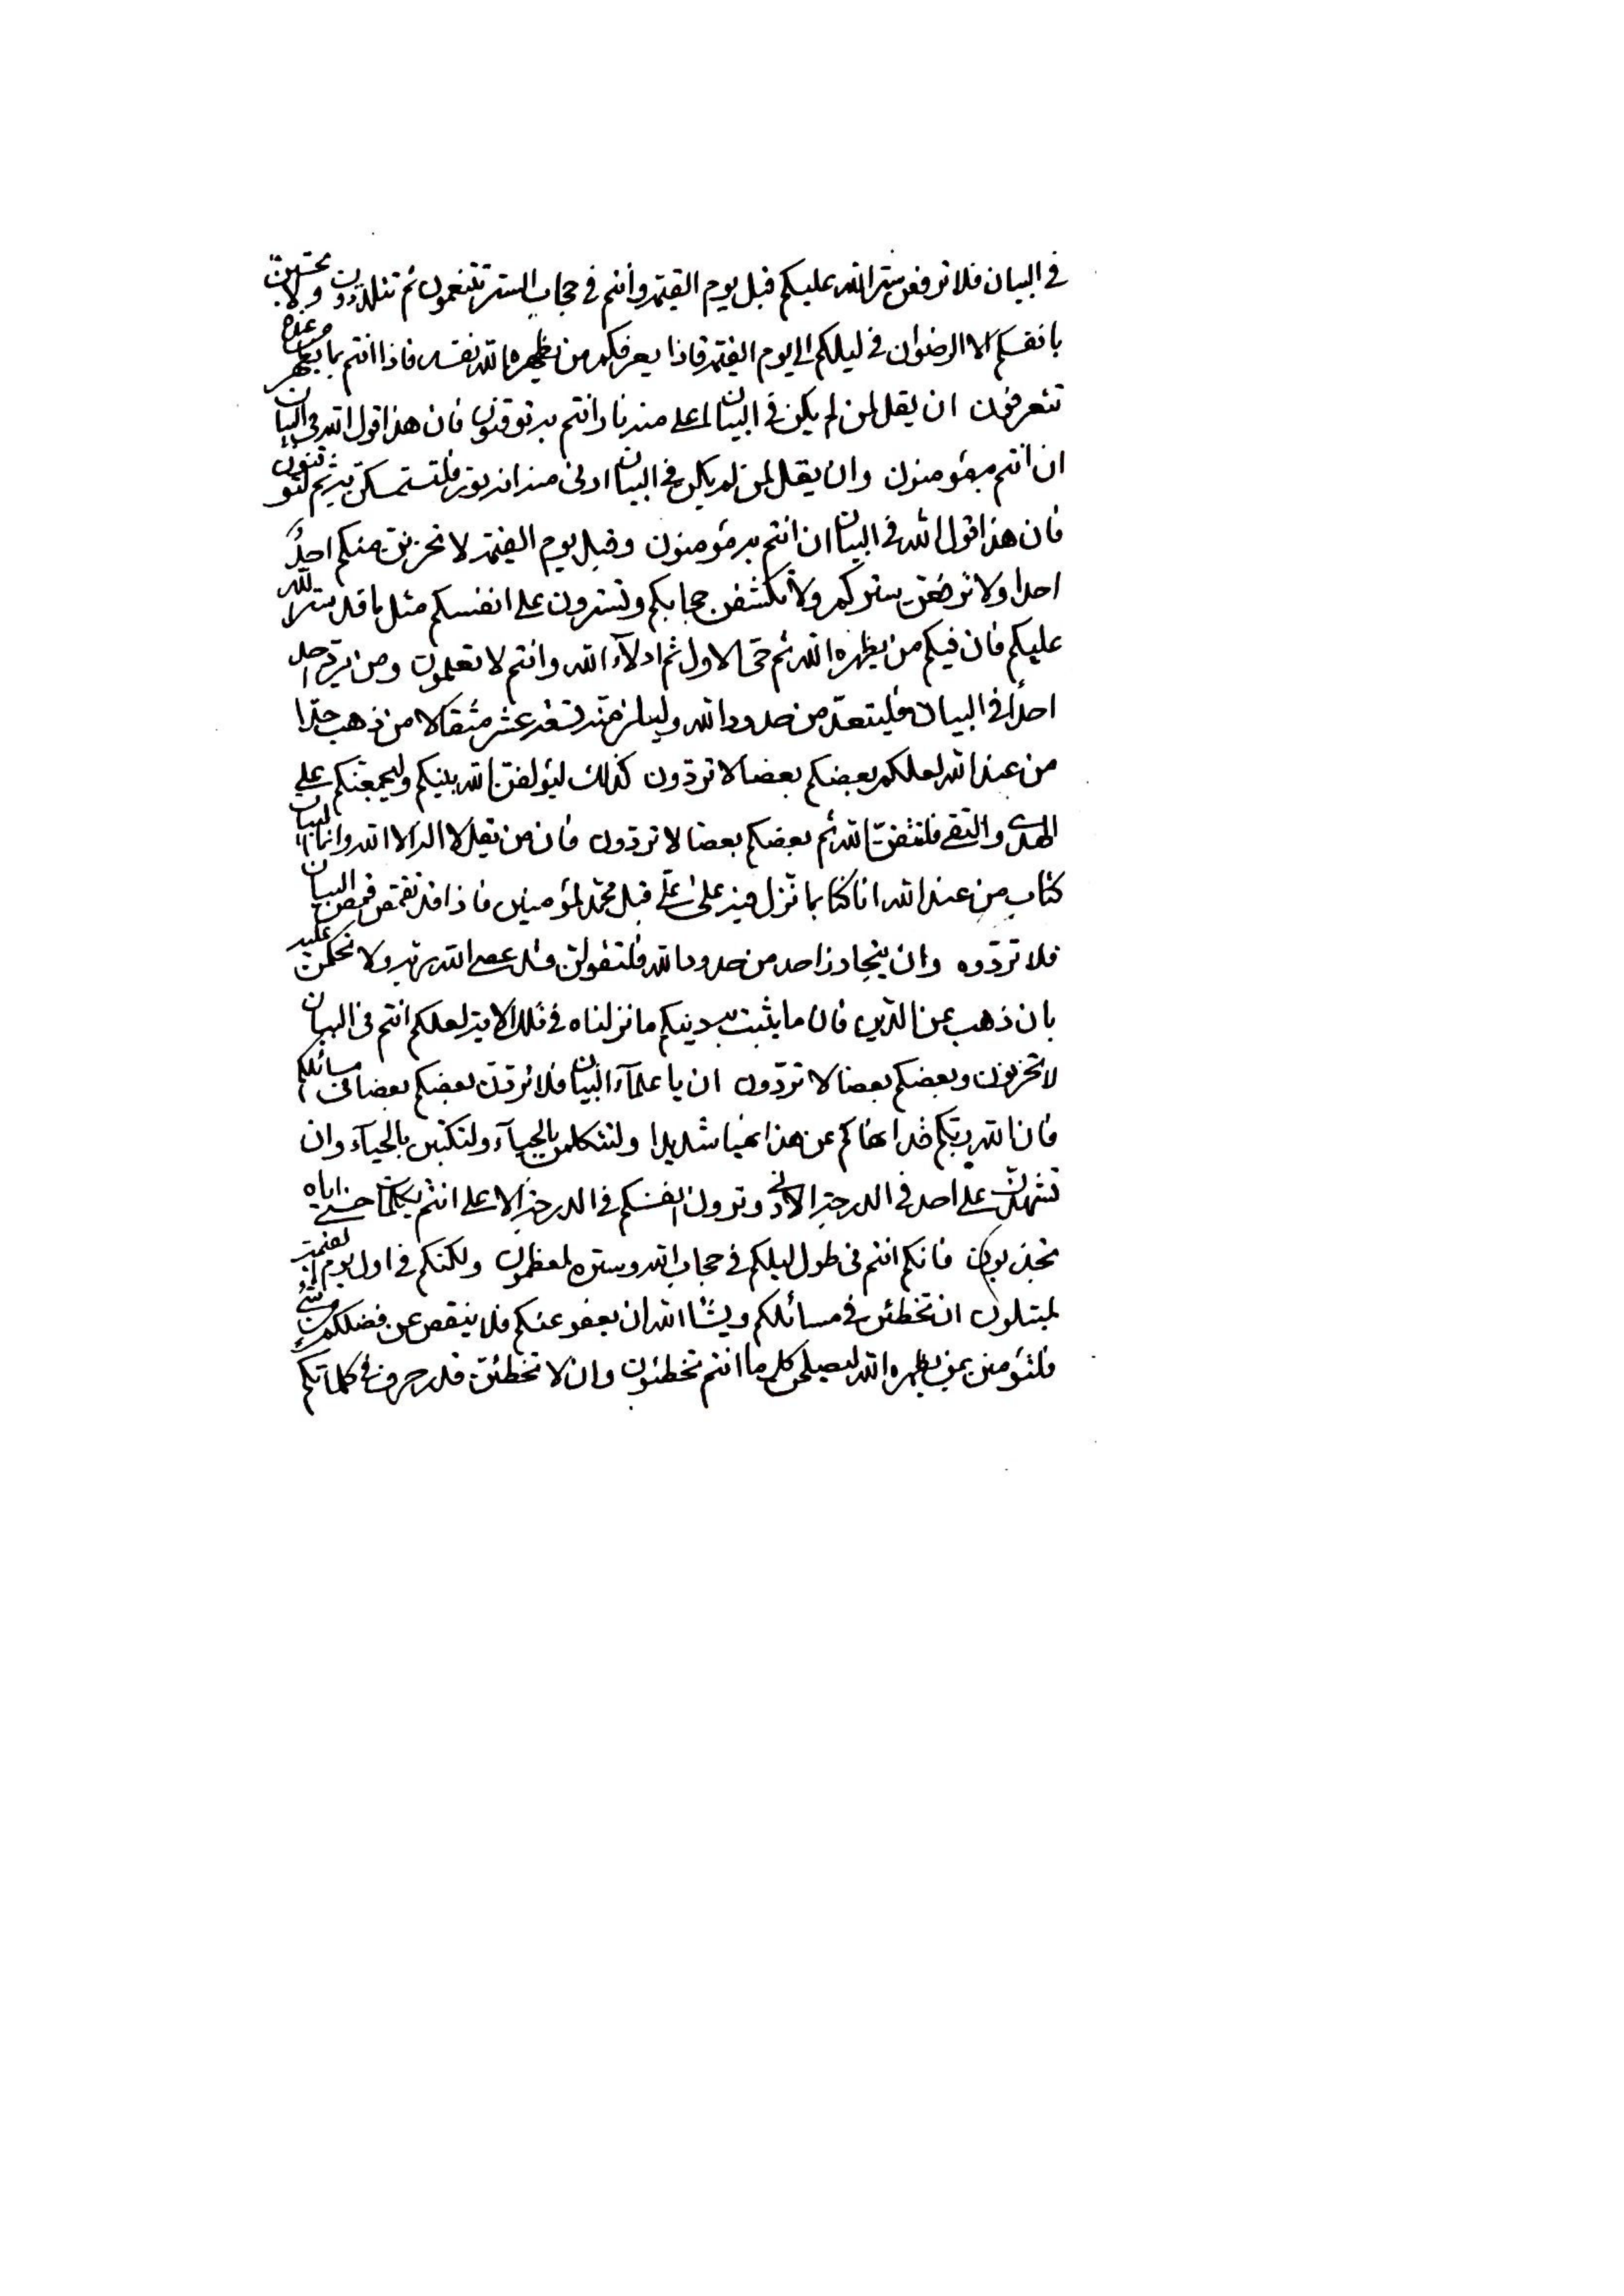 في البيان فلا ترفعن ستر الله عليكم قبل يوم القيمة وأنتم في حجاب الستر تتنعمون ثم تتلذذون ولا تحسبن
بانفسكم الا الرضوان في ليلكم الى يوم القيمة فاذا يعرفكم من يظهره الله نفسه فاذا انتم بما يظهر من عنده
تتعرفون ان يقل لمن لم يكن في البيان اعلى منه نار انتم به توقنون فان هذا قول الله في البيان
ان انتم به مؤمنون وان يقل لمن لم يكن في البيان ادنى منه انه نور فلتستمسكن به ثم لتوقنون
فان هذا قول الله في البيان ان انتم به مؤمنون وقبل يوم القيمة لا تحزنن منكم احد
احدا ولا ترفعن ستركم ولا تكشفن حجابكم وتسترون على انفسكم مثل ما قد ستر الله
عليكم فان فيكم من يظهره الله ثم حي الاول ثم ادلاء الله وانتم لا تعلمون ومن يرد احد
احدا في البيان فليتعد من حدود الله وليلزمنه تسعة عشر مثقالا من ذهب حدا
من عند الله لعلكم بعضكم بعضا لا تردون كذلك ليؤلفن الله بينكم وليجمعنكم على
الهدى والتقى فلتتقن الله ثم بعضكم بعضا لا تردون فان من يقل لا اله الا الله وان البيان
كتاب من عند الله انا كنا بما نزل فيه على علي قبل محمد لمؤمنين فاذا قد تقمص قمص البيان
فلا تردوه وان يتجاوز احد من حدود الله فلتقولن قد عصى الله ربه ولا تحكمن عليه
بان ذهب عن الدين فان ما يثبت به دينكم ما نزلناه في تلك الاية لعلكم انتم في البيان
لا تحزنون وبعضكم بعضا لا تردون ان يا علماء البيان فلا تردن بعضكم بعضا في مسائلكم
فان الله ربكم قد انهاكم عن هذا نهيا شديدا ولتتكلمن بالحياء ولتكتبن بالحياء وان
تشهدن على احد في الدرجة الادنى وترون انفسكم في الدرجة الاعلى انتم بكلمات حسنى اياه
تجذبون فانكم انتم في طول ليلكم في حجاب الله وستره لمعظمون ولكنكم في اول يوم القيمة
لمبتلون ان تخطئن في مسائلكم ويشاء الله ان يعفو عنكم فلا ينقص عن فضلكم من شيء
فلتؤمنن بمن يظهره الله ليصلحن كل ما انتم تخطئون وان لا تخطئن قدر حرف في كلماتكم